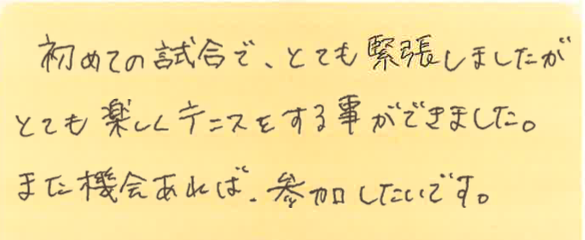 初めての試合で、とても緊張しましたが
とても楽しくテニスをする事ができました。
また機会あれば、参加したいです。